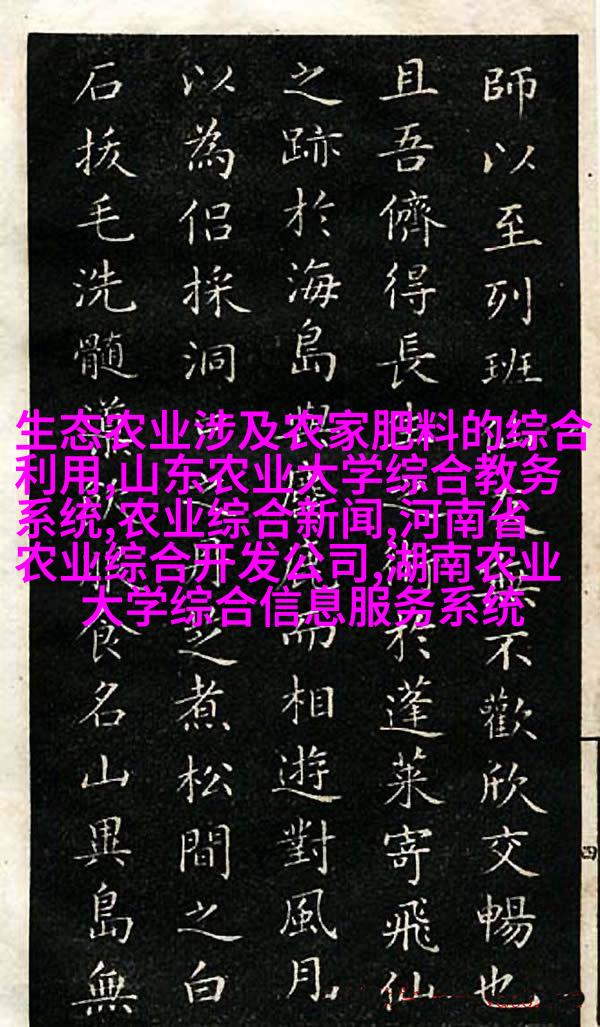 生态农业涉及农家肥料的综合
利用,山东农业大学综合教务
系统,农业综合新闻,河南省
农业综合开发公司,湖南农业
大学综合信息服务系统
師以至列班不歡欣交暢也
且吾儕得長生之術於蓬萊寄飛仙
之跡於海島而相遊對風月
以為侶採洞之煮松間之白
石拔毛洗髓食名山異島無